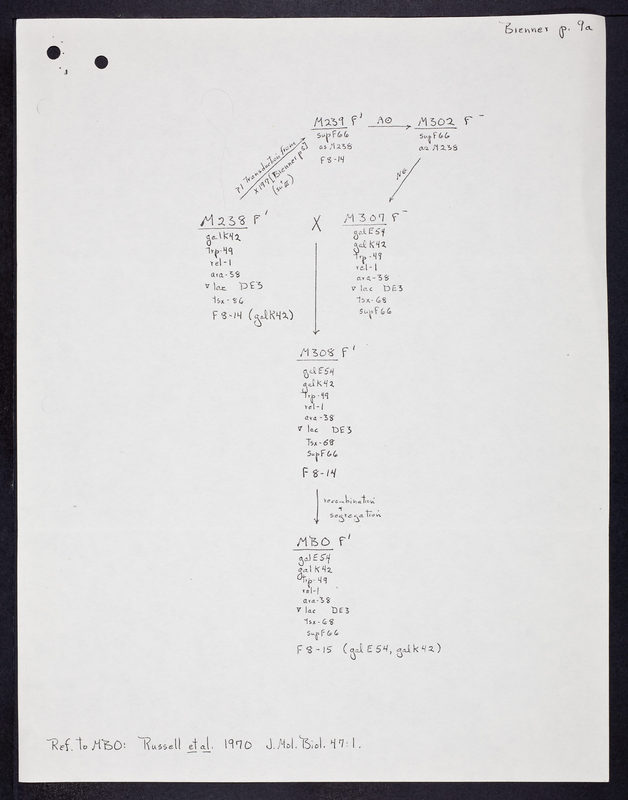 Brenner p. 9a
M239 F' AO M302 F⁻
supF66 supF66
as M238 as M238
F8-14
P1 Transduction from
X197 [Brenner p 6]
NG
M238 F' X M307 F⁻
galK42 galE54
Trp-49 galK42
rel-1 Trp-49
ara-38 rel-1
∇ lac DE3 ara-38
Tsx-86 ∇ lac DE3
F 8-14 (galK42) Tsx-68
supF66
M308 F'
galE54
galK42
Trp-49
rel-1
ara-38
∇ lac DE3
Tsx-68
SupF66
F 8-14
recombination
+
segregation
MBO F'
galE54
galK42
Trp-49
rel-1
ara-38
∇ lac DE3
Tsx-68
supF66
F 8-15 (galE54, galK42)
Ref. to MBO: Russell et al. 1970 J. Mol. Biol. 47:1.